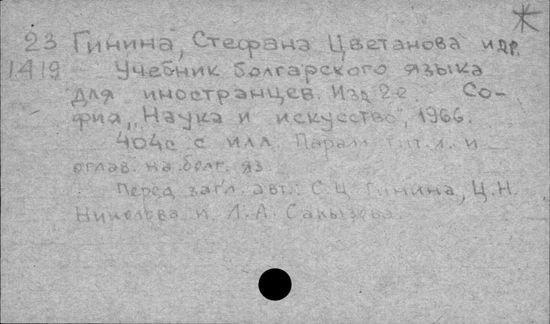 23 Гинина, Стефана Цветанова и др.
1419 Учебник болгарского языка
для иностранцев. Изд 2е Со-
фия, „Наука и искусство, 1966.
404с с илл. Парал. тит. л. и
оглав. на болг. яз.
Перед загл. авт.: С.Ц. Гинина, Ц.Н.
Николова и Л.А. Сакызова